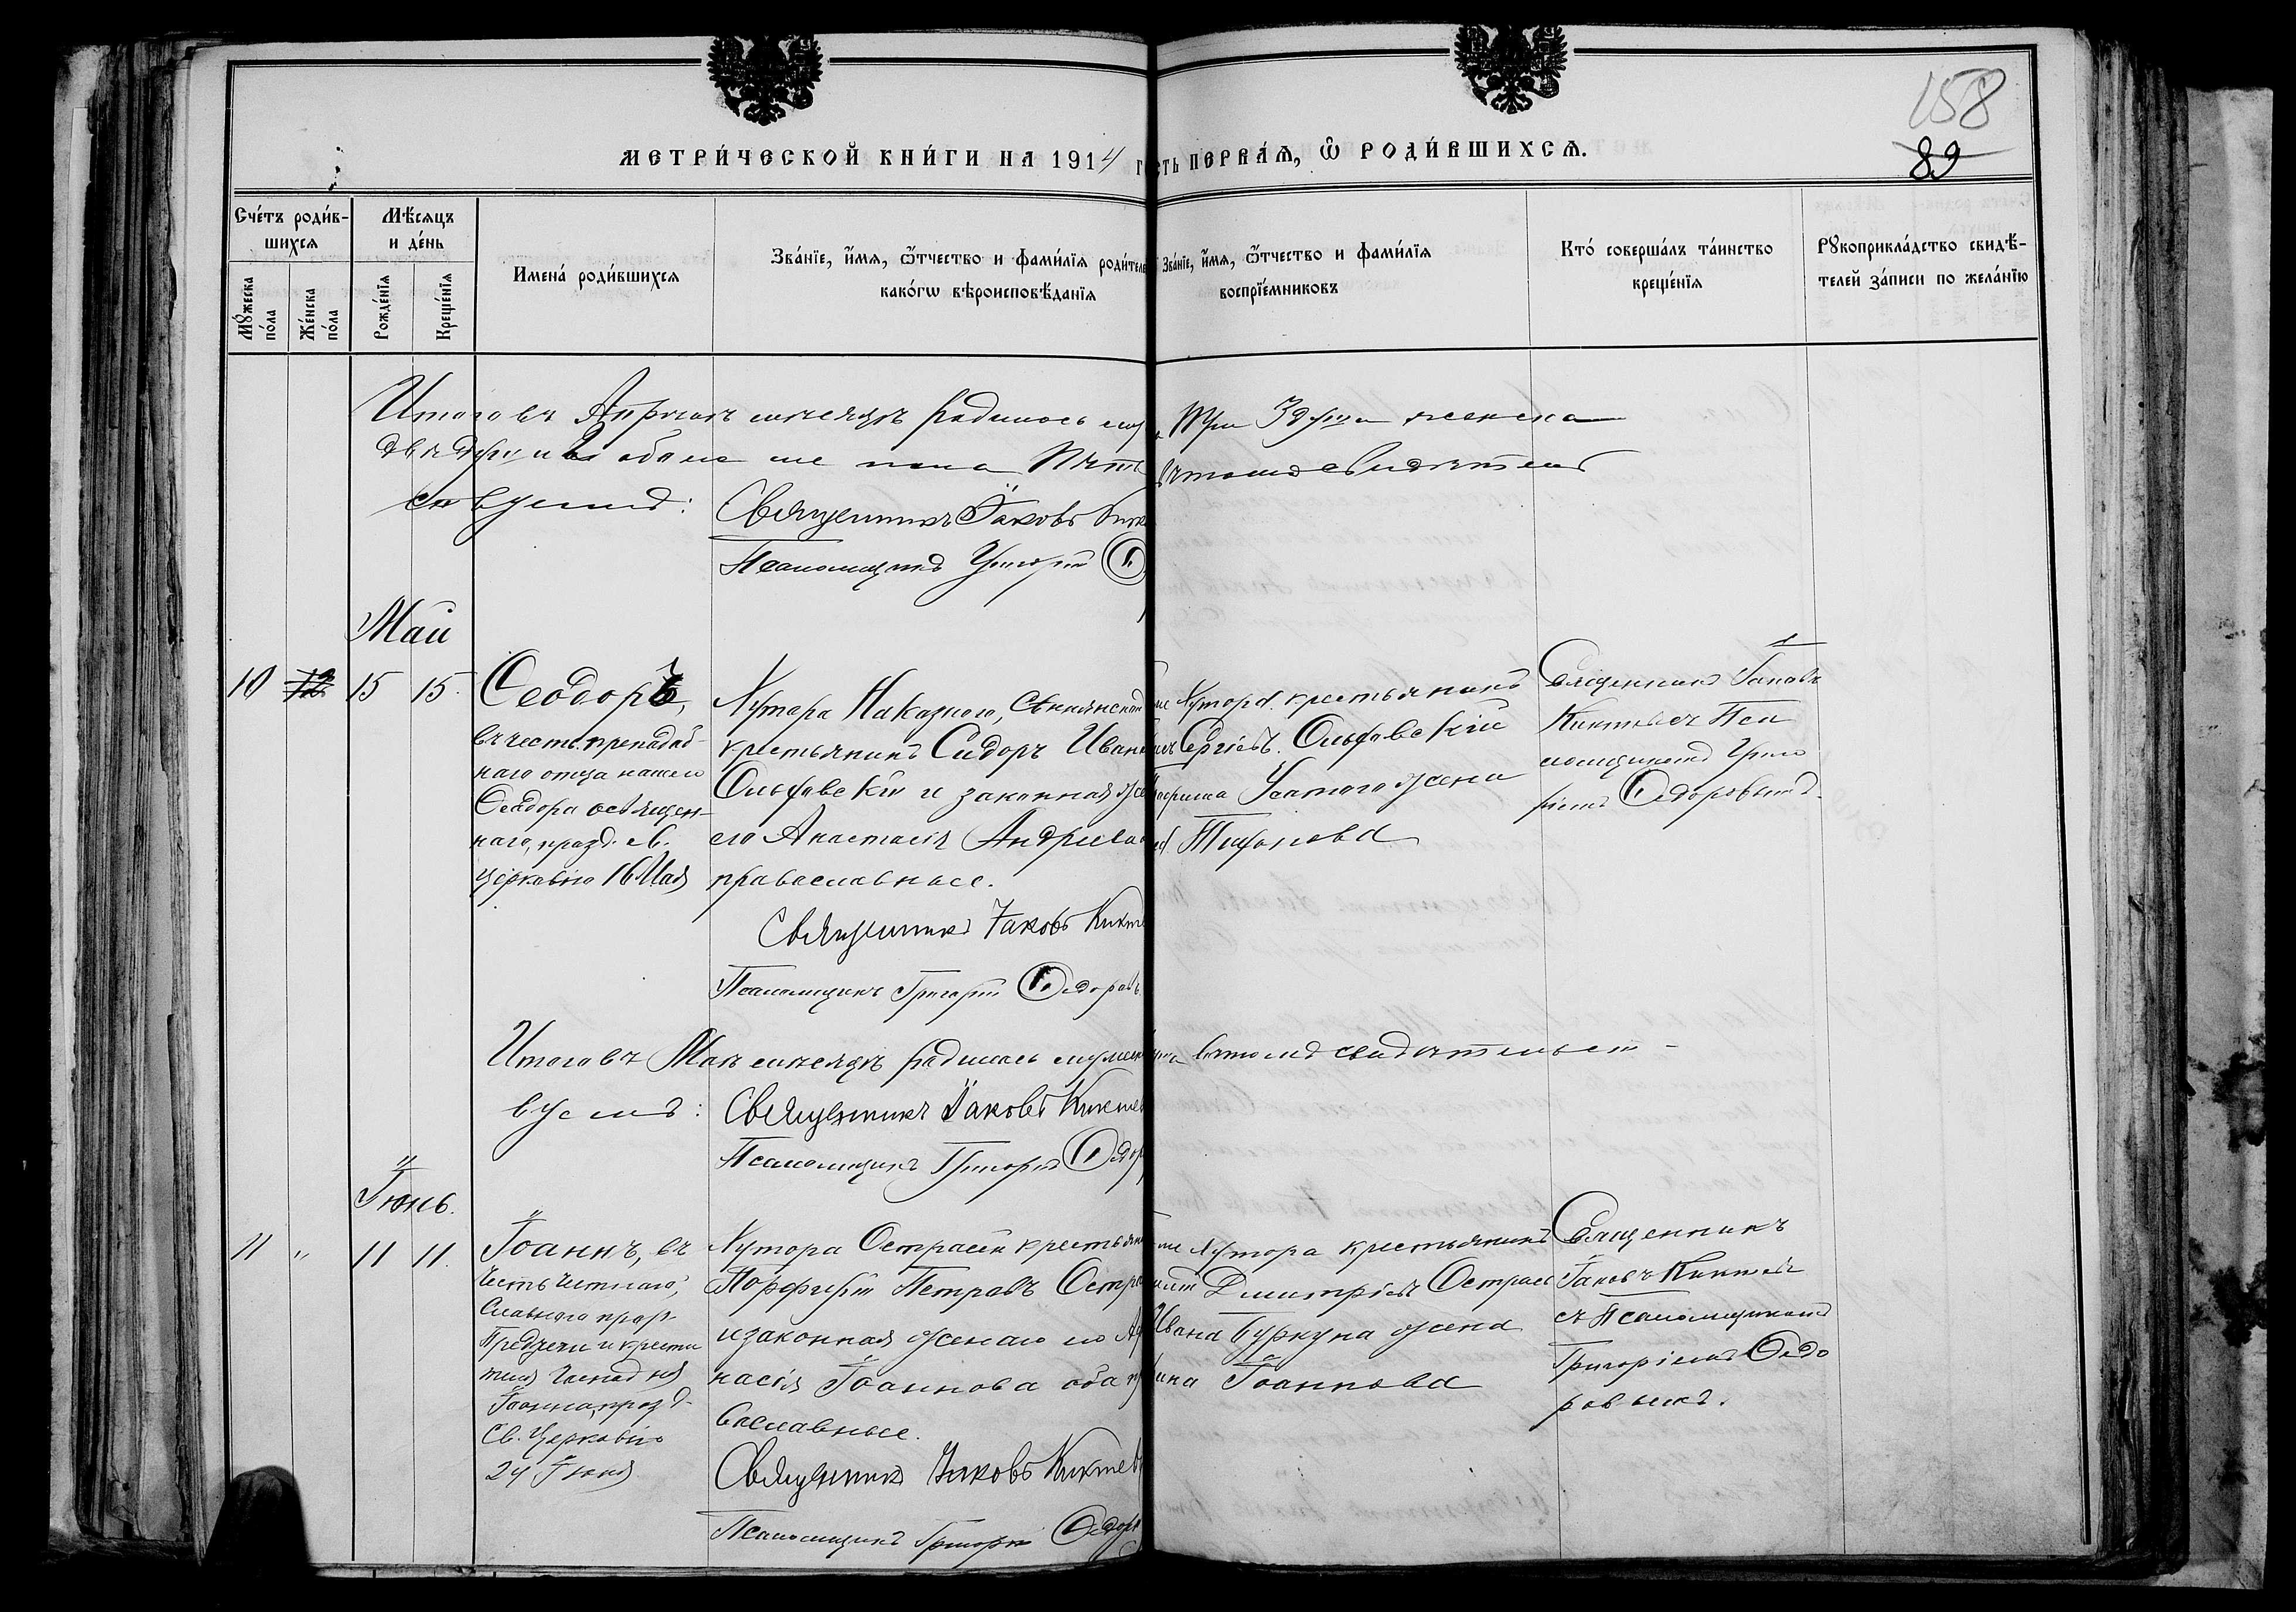 158
89
МЕТРИ́ЧЕСКОЙ КНИ́ГИ НА 1914 г
сть ПЕРВА́Я, Ѡ РОДИ́ВШИХСЯ.
Сче́тъ роди́в-
шихся
Мꙋ́жеска по́ла
Же́нска по́ла
Мѣ́сяцъ
и де́нь
Рожде́нїя
Креще́нїя
Имена́ роди́вшихся
Зва́нїе, и́мя, ѻ́тчество и фами́лїя роди́теле
како́гѡ вѣроисповѣ́данїя
Зва́нїе, и́мя, ѻ́тчество и фами́лїя
воспрїе́мниковъ
Кто́ соверша́лъ та́инство
креще́нїя
Рꙋкоприкла́дство свидѣ́-
телей за́писи по жела́нїю
Итого въ Апрѣлѣ мѣсяцѣ родилось
три женска
двѣ обоего же пола пять
въ томъ свидѣтель
ствуемъ:
Священникъ Іаковъ Кик
Псаломщикъ Григорій Ѳ
Май
10 15 15.
Ѳеодоръ,
въ честь преподоб-
наго отца нашего
Ѳеодора освящен-
наго, празд. Св.
Церковію 16 Мая
Хутора Наказного, Сѣнянской
крестьянинъ Сидоръ Иван
Ольховскій и законная же
его Анастасія Андреева
православные.
Священникъ Іаковъ Кикте
Псаломщикъ Григорій Ѳедоровъ
же хутора крестьянинъ
Сергіевъ Ольховскій
Усатого жена
Священникъ Іаковъ
Киктевъ съ Пса
ломщикомъ Григо
ріемъ Ѳедоровымъ.
Итого въ Маѣ мѣсяцѣ родилось мужеск
въ томъ свидѣтельст-
вуемъ:
Священникъ Іаковъ Киктев
Псаломщикъ Григорій Ѳедор
Іюнь.
11 " 11 11.
Іоаннъ, въ
честь честнаго,
Славнаго прор.
Предтечи и крести
теля Господня
Іоанна, празд.
Св. Церковію
24 Іюня
Хутора Острасен крестьян
Порфирій Петровъ Остра
и законная жена его А
насія Іоаннова оба пр
вославные.
Священникъ Іаковъ Киктев
Псаломщикъ Григорій Ѳедор
же хутора крестьянинъ
Димитріевъ Острасе
Ивана Буркуна жена
ина Іоаннова
Священникъ
Іаковъ Киктевъ
съ Псаломщикомъ
Григоріемъ Ѳедо
ровымъ.